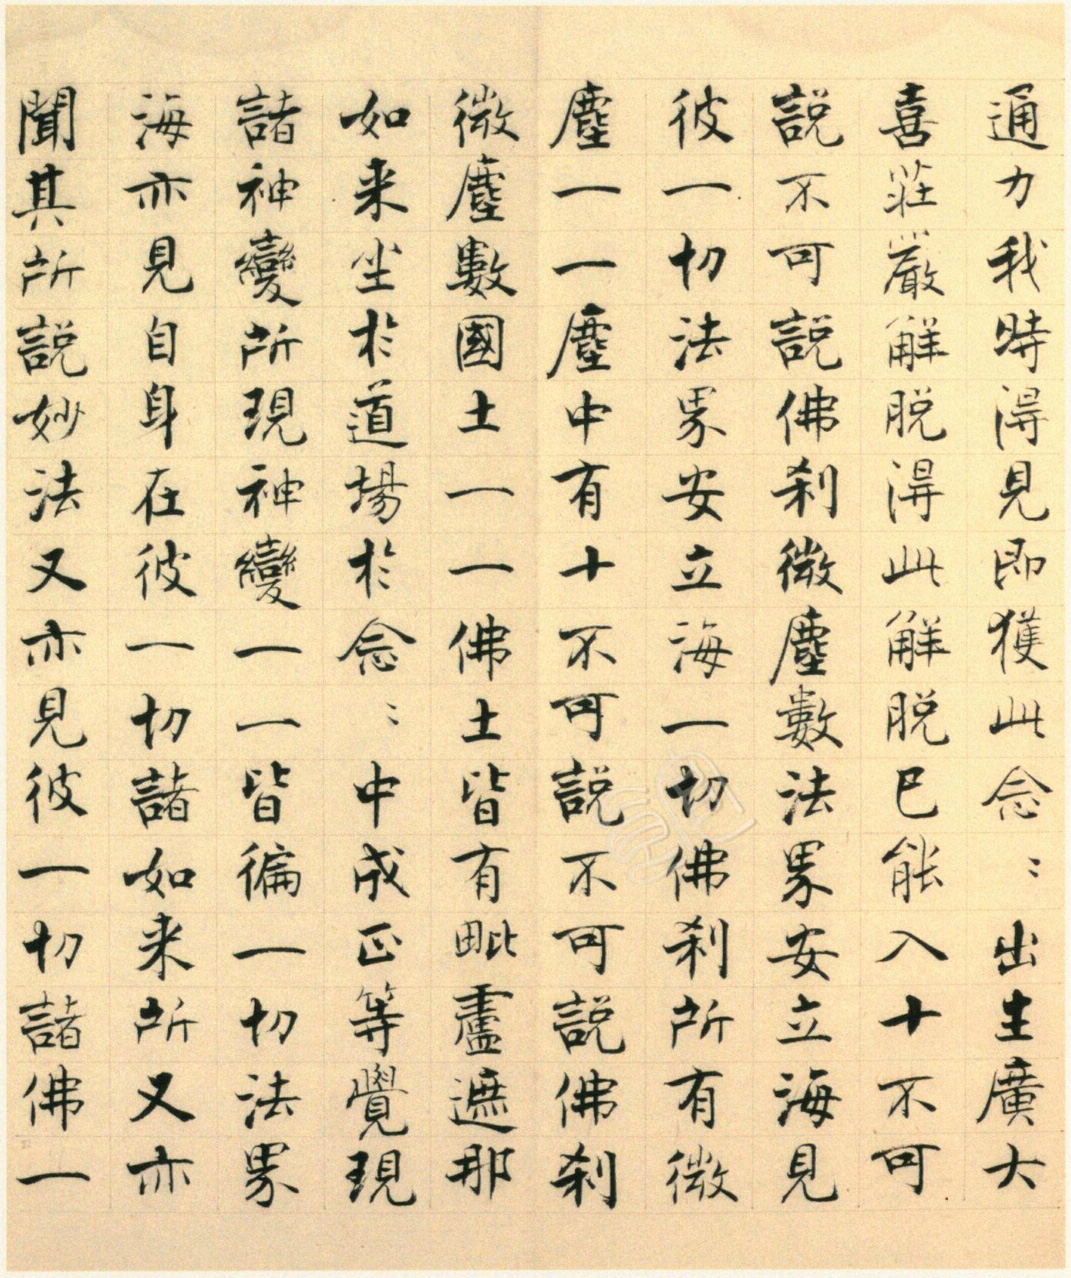 通力我時得見即獲此念〻出生廣大
喜莊嚴解脫得此解脫已能入十不可
說不可說佛刹微塵數法界安立海見
彼一切法界安立海一切佛刹所有微
塵一一塵中有十不可說不可說佛刹
微塵數國土一一佛土皆有毗盧遮那
如来坐於道場於念〻中成正等覺現
諸神變所現神變一一皆徧一切法界
海亦見自身在彼一切諸如来所又亦
聞其所說妙法又亦見彼一切諸佛一